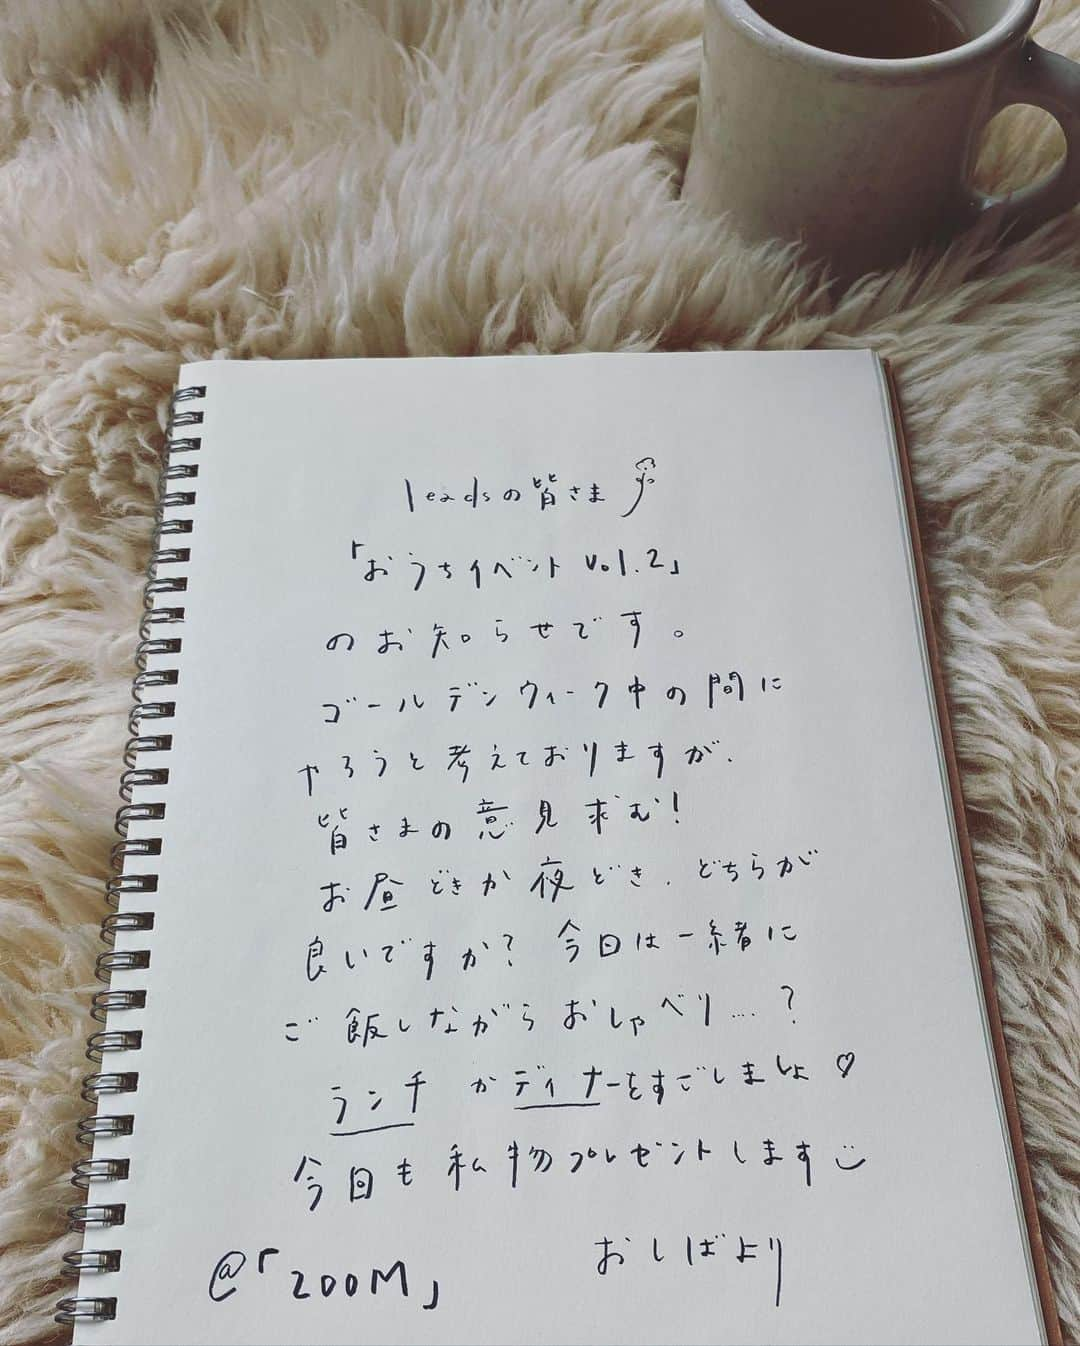 leadsの皆さま
「おうちイベント vol.2」
のお知らせです。
ゴールデンウィーク中の間に
やろうと考えておりますが、
皆さまの意見求む!
お昼どきか夜どき、どちらが
良いですか? 今日は一緒に
ご飯しながらおしゃべり…?
ランチ かディナーをすごしましょ♡
今日も私物プレゼントします
おしばより
@「ZOOM」